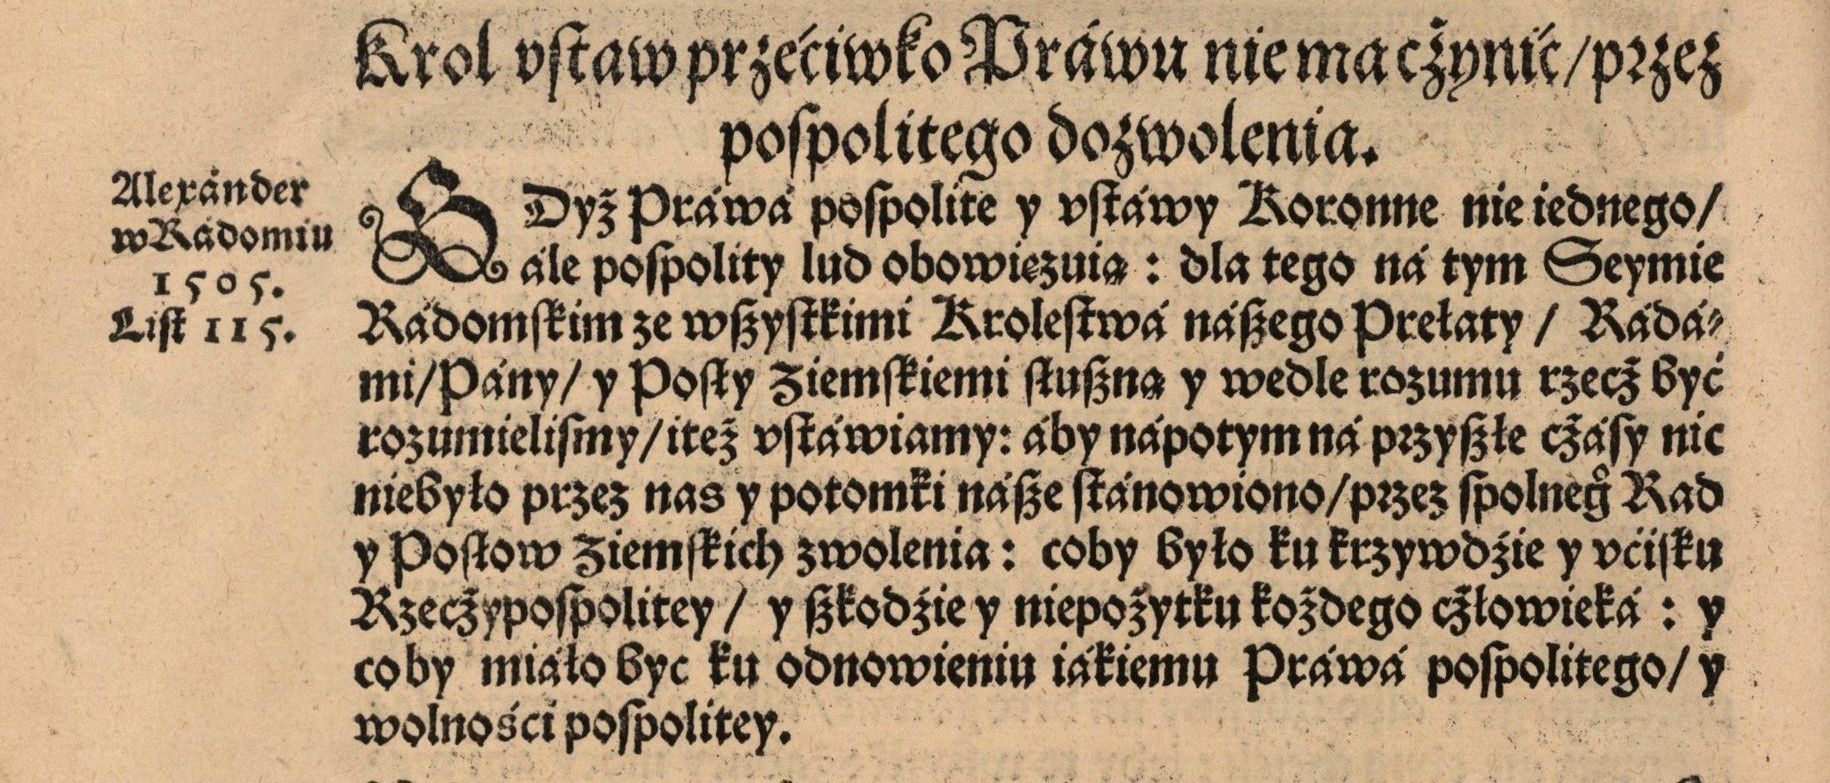 Krol vſtaw przećiwko Práwu nie ma cżynić/ przez
poſpolitego dozwolenia.
Alexánder
w Rádomiu
1505.
Liſt 115.
GDyż Práwá poſpolite y vſtáwy Koronne nie iednego/
ále poſpolity lud obowięzuią : dla tego ná tym Seymie
Rádomſkim ze wßyſtkimi Kroleſtwá náßego Prełaty / Rádá⸗
mi/ Pány/ y Poſły Ziemſkiemi słußną y wedle rozumu rzecż być
rozumieliſmy/ iteż vſtáwiamy: áby nápotym ná przyßłe cżáſy nic
niebyło przez nas y potomki náße ſtánowiono/ przez ſpolneg̊ Rad
y Poſłow Ziemſkich zwolenia : coby było ku krzywdźie y vćiſku
Rzecżypoſpolitey / y ßkodźie y niepożytku kożdego cżłowieká : y
coby miáło byc ku odnowieniu iákiemu Práwá poſpolitego/ y
wolnośći poſpolitey.